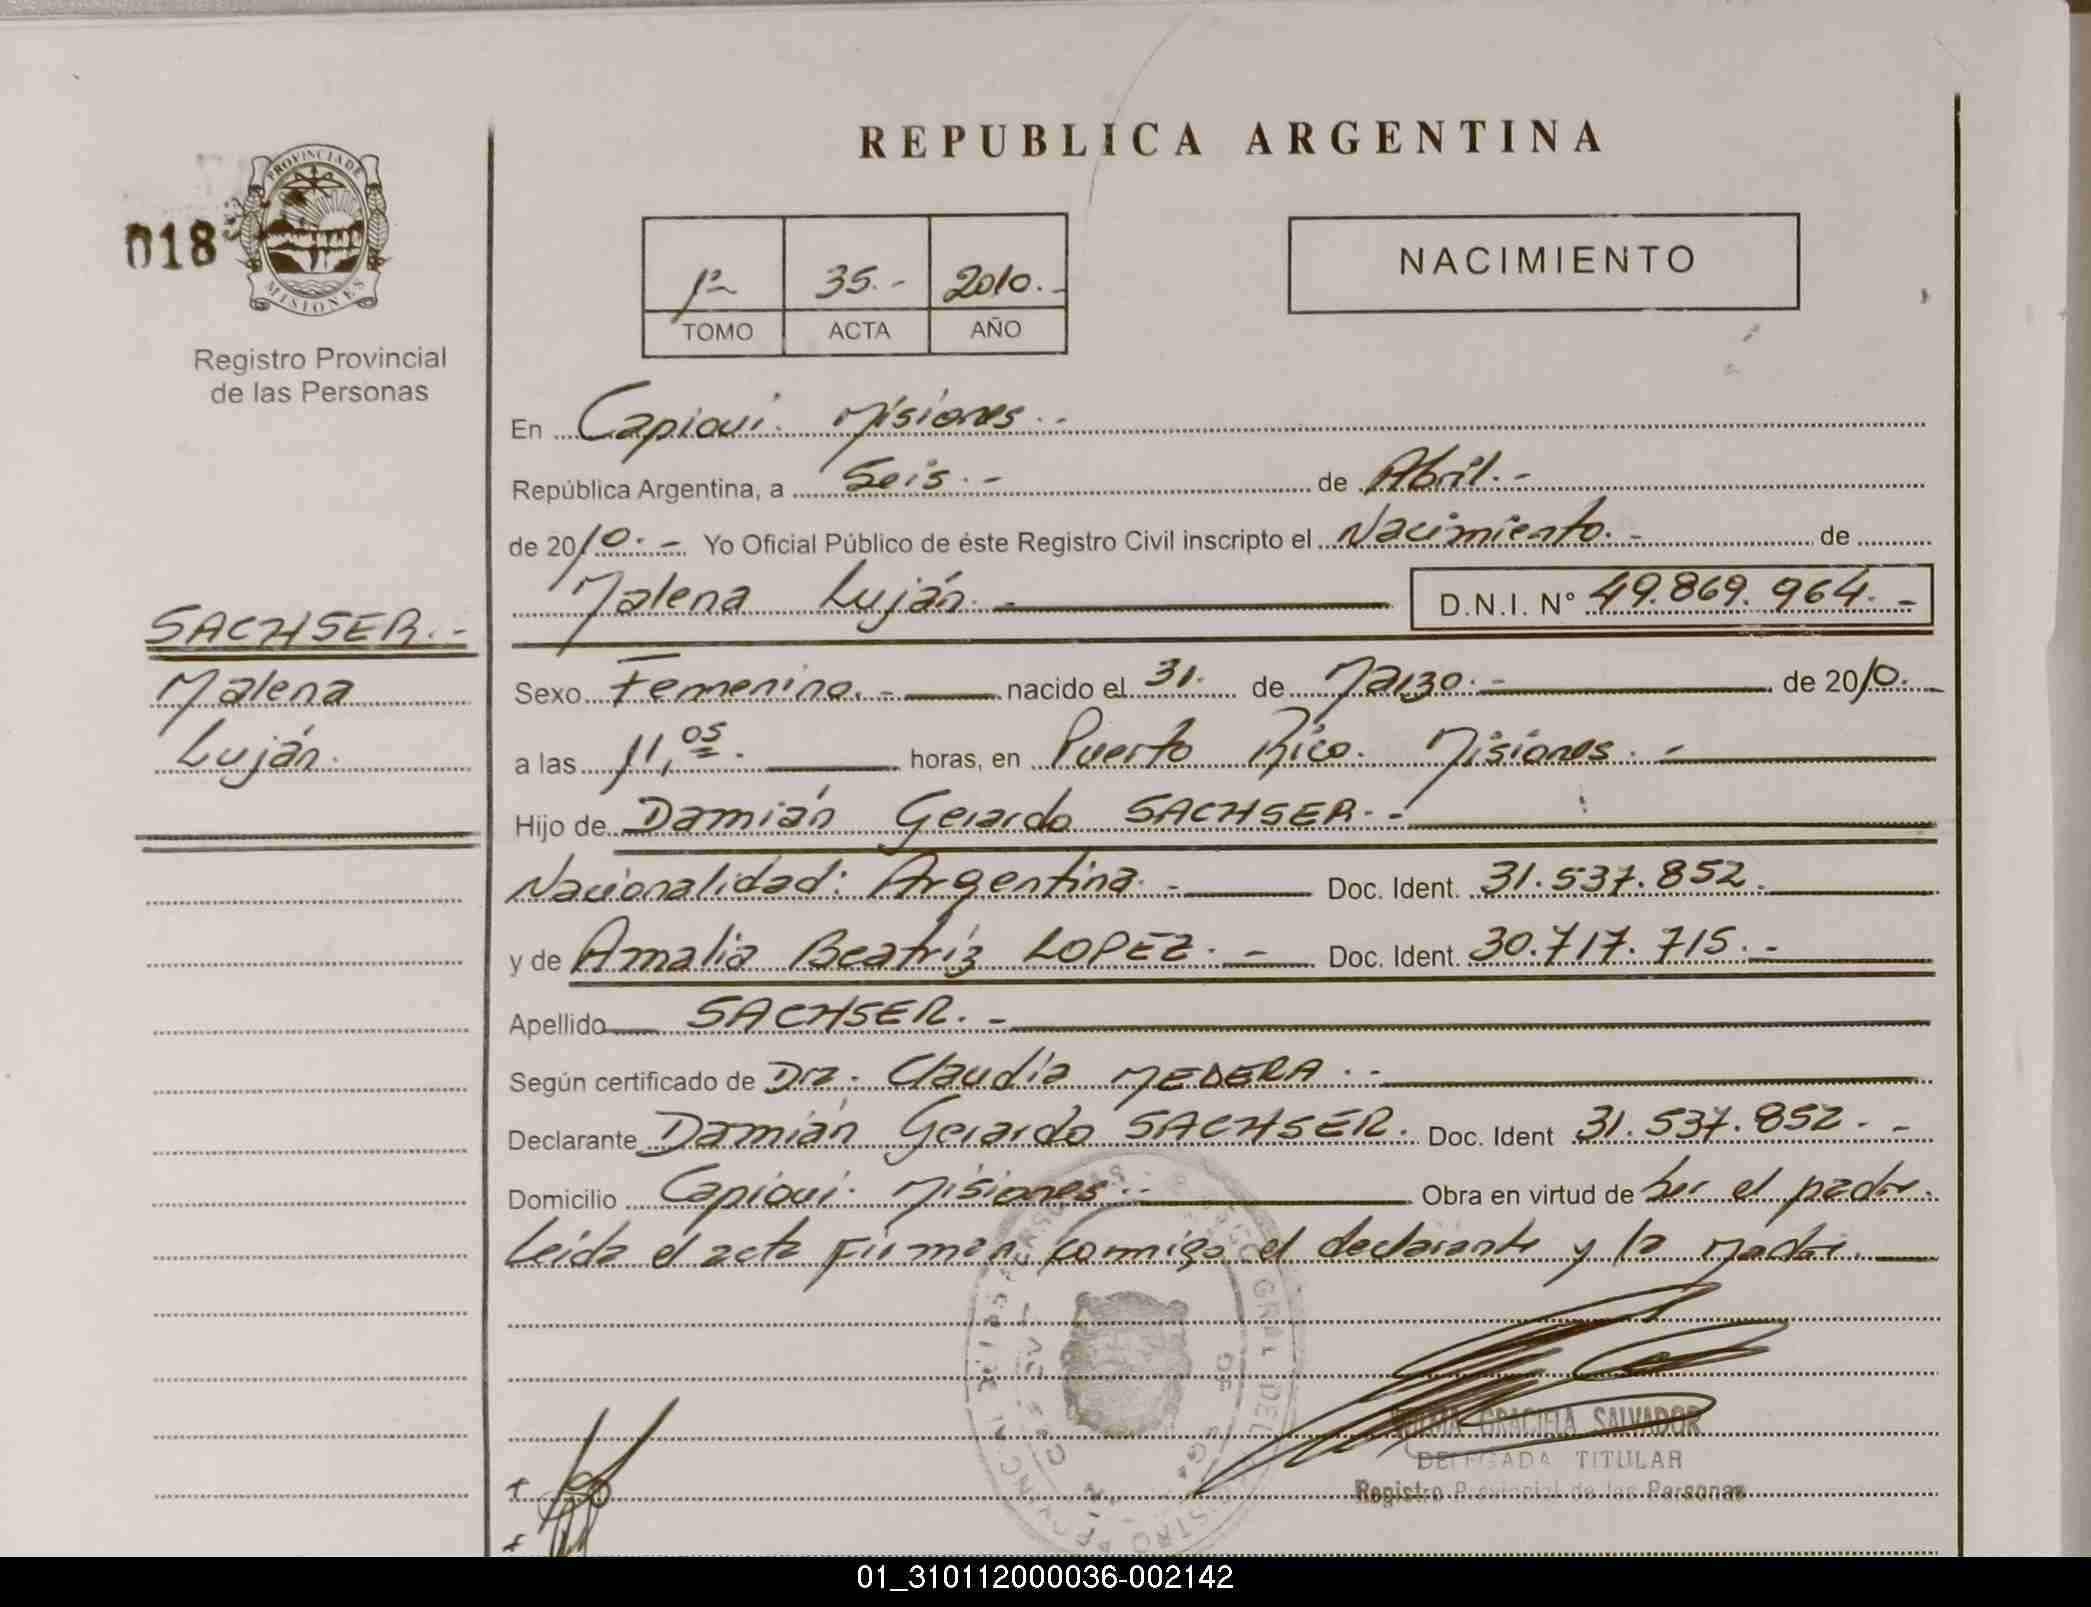 REPUBLICA ARGENTINA
PROVINCIA DE
MISIONES
018
Registro Provincial
de las Personas
1º 35.- 2010.-
TOMO ACTA AÑO
NACIMIENTO
En Capioví. Misiones.-
República Argentina, a Seis.- de Abril.-
de 2010.- Yo Oficial Público de éste Registro Civil inscripto el Nacimiento.- de
Malena Luján.- D.N.I. Nº 49.869.964.-
SACHSER.-
Malena
Luján.
Sexo Femenino.- nacido el 31. de Marzo.- de 2010.-
a las 11,05. horas, en Puerto Rico. Misiones.-
Hijo de Damián Gerardo SACHSER.-
Nacionalidad: Argentina.- Doc. Ident. 31.537.852.
y de Amalia Beatriz LOPEZ.- Doc. Ident. 30.717.715.-
Apellido SACHSER.-
Según certificado de Dra. Claudia MEDERA.-
Declarante Damián Gerardo SACHSER. Doc. Ident 31.537.852.-
Domicilio Capioví. Misiones.- Obra en virtud de ser el padre.
Leída el acta firman conmigo el declarante y la madre.
GRACIELA SALVADOR
DELEGADA TITULAR
Registro Provincial de las Personas
01_310112000036-002142